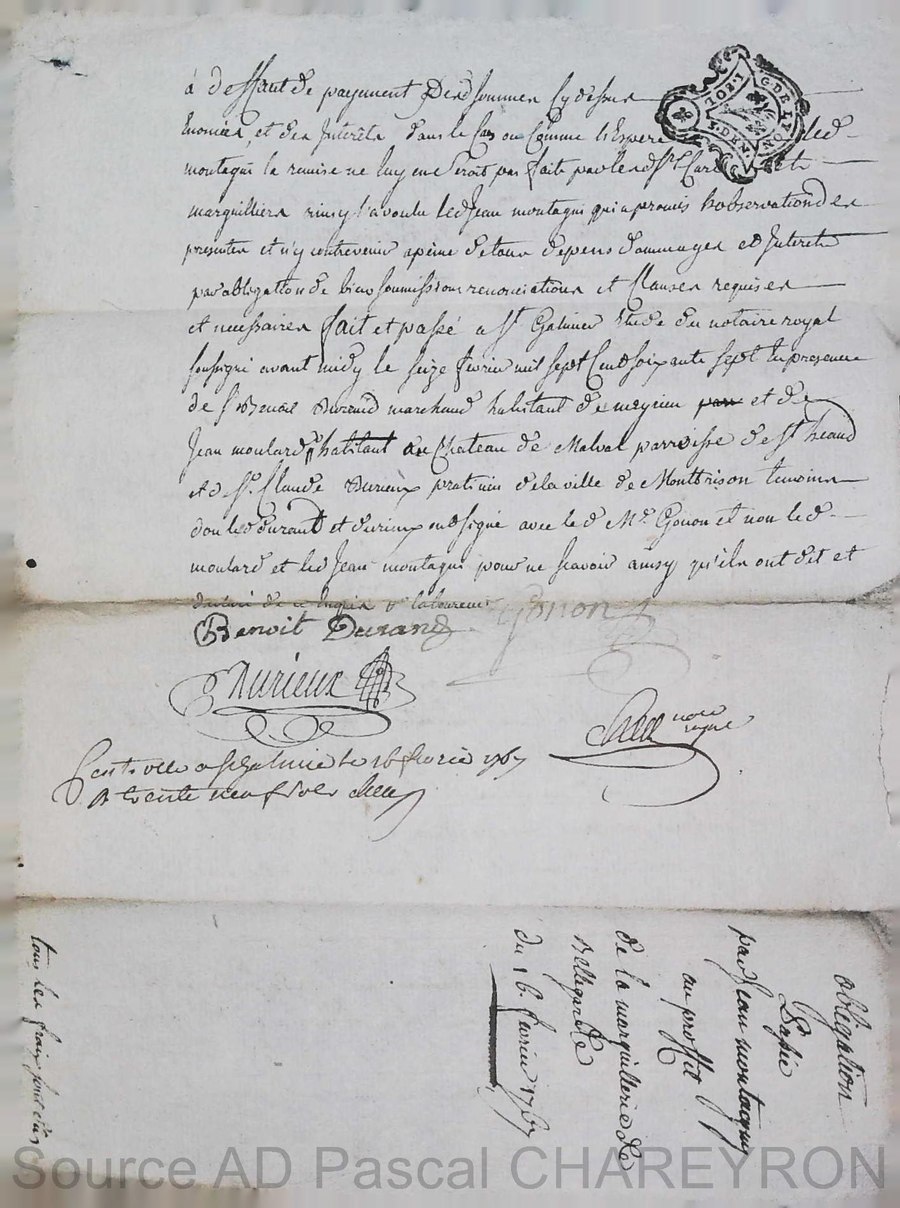 à deffaut de payement desd sommes cy dessus
énoncées, et des Interêts dans le Cas ou Comme il Espere led
montagni la remise ne luy en seroit pas faite par lesd Srs Curé et
marguilliers ainsy l'a voulu led Jean montagni qui a promis l'observation des
presentes et n'y contrevenir a peine de tous depens dommages et Interêts
par obligation de biens soumissions renonciations et Clauses requises
et necessaires fait et passé a St Galmier étude du notaire royal
soussigné avant midy le seize fevrier mil sept Cent soixante sept En presence
de Sr Benoit Durand marchand habitant de meyrieu et de
Jean moulard habitant au Chateau de Malval parroisse de St heand
et de Sr Claude Durieux praticien de la ville de Montbrison temoins
dont led durand et durieux ont signé avec led Mre Gonon et non led
moulard et led Jean montagni pour ne scavoir ainsy qu'ils ont dit et
declaré de ce enquis
Benoit Durand Gonon
Durieux
nore royal
Controllé a St Galmier le 16 fevrier 1767
R trente neuf sols
obligation
Passée
par Jean montagny
au proffit
de la marguillerie de
Bellegarde
du 16 fevrier 1767
tous les fraix
G. DE LYON
DEN.
Source AD Pascal CHAREYRON